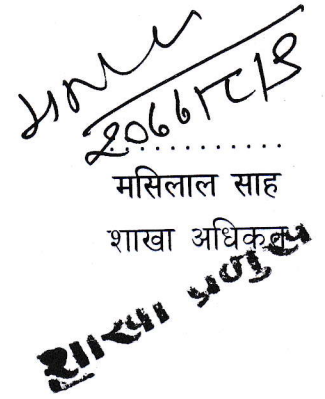 २०७७।८।९
............
मसिलाल साह
शाखा अधिकृत
शाखा प्रमुख